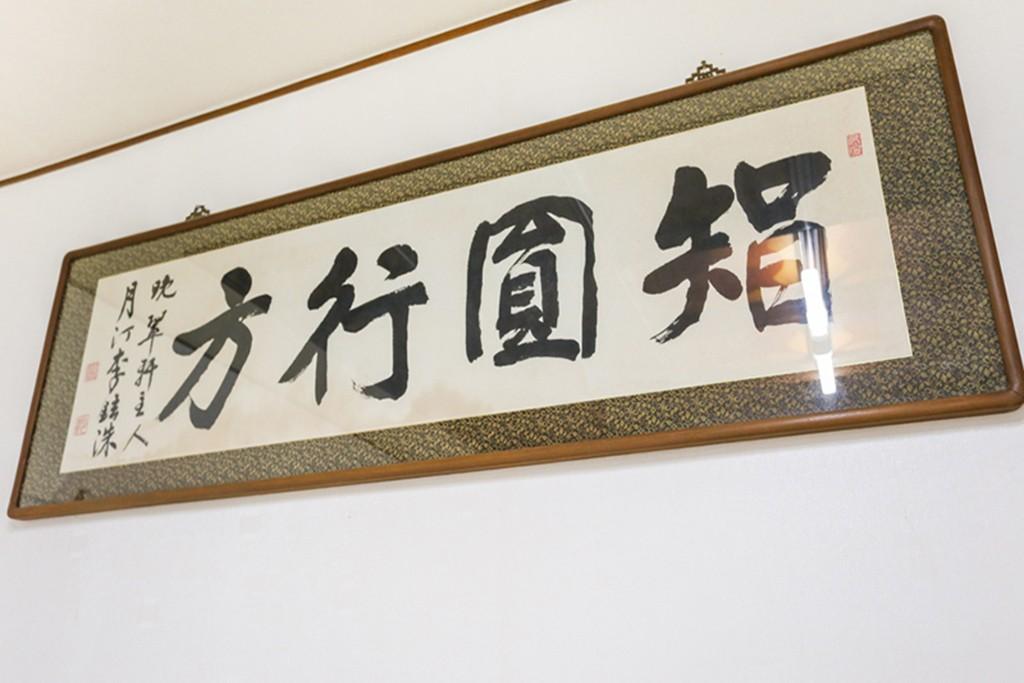 智圓行方
晩翠軒主人
月汀李鋕洙